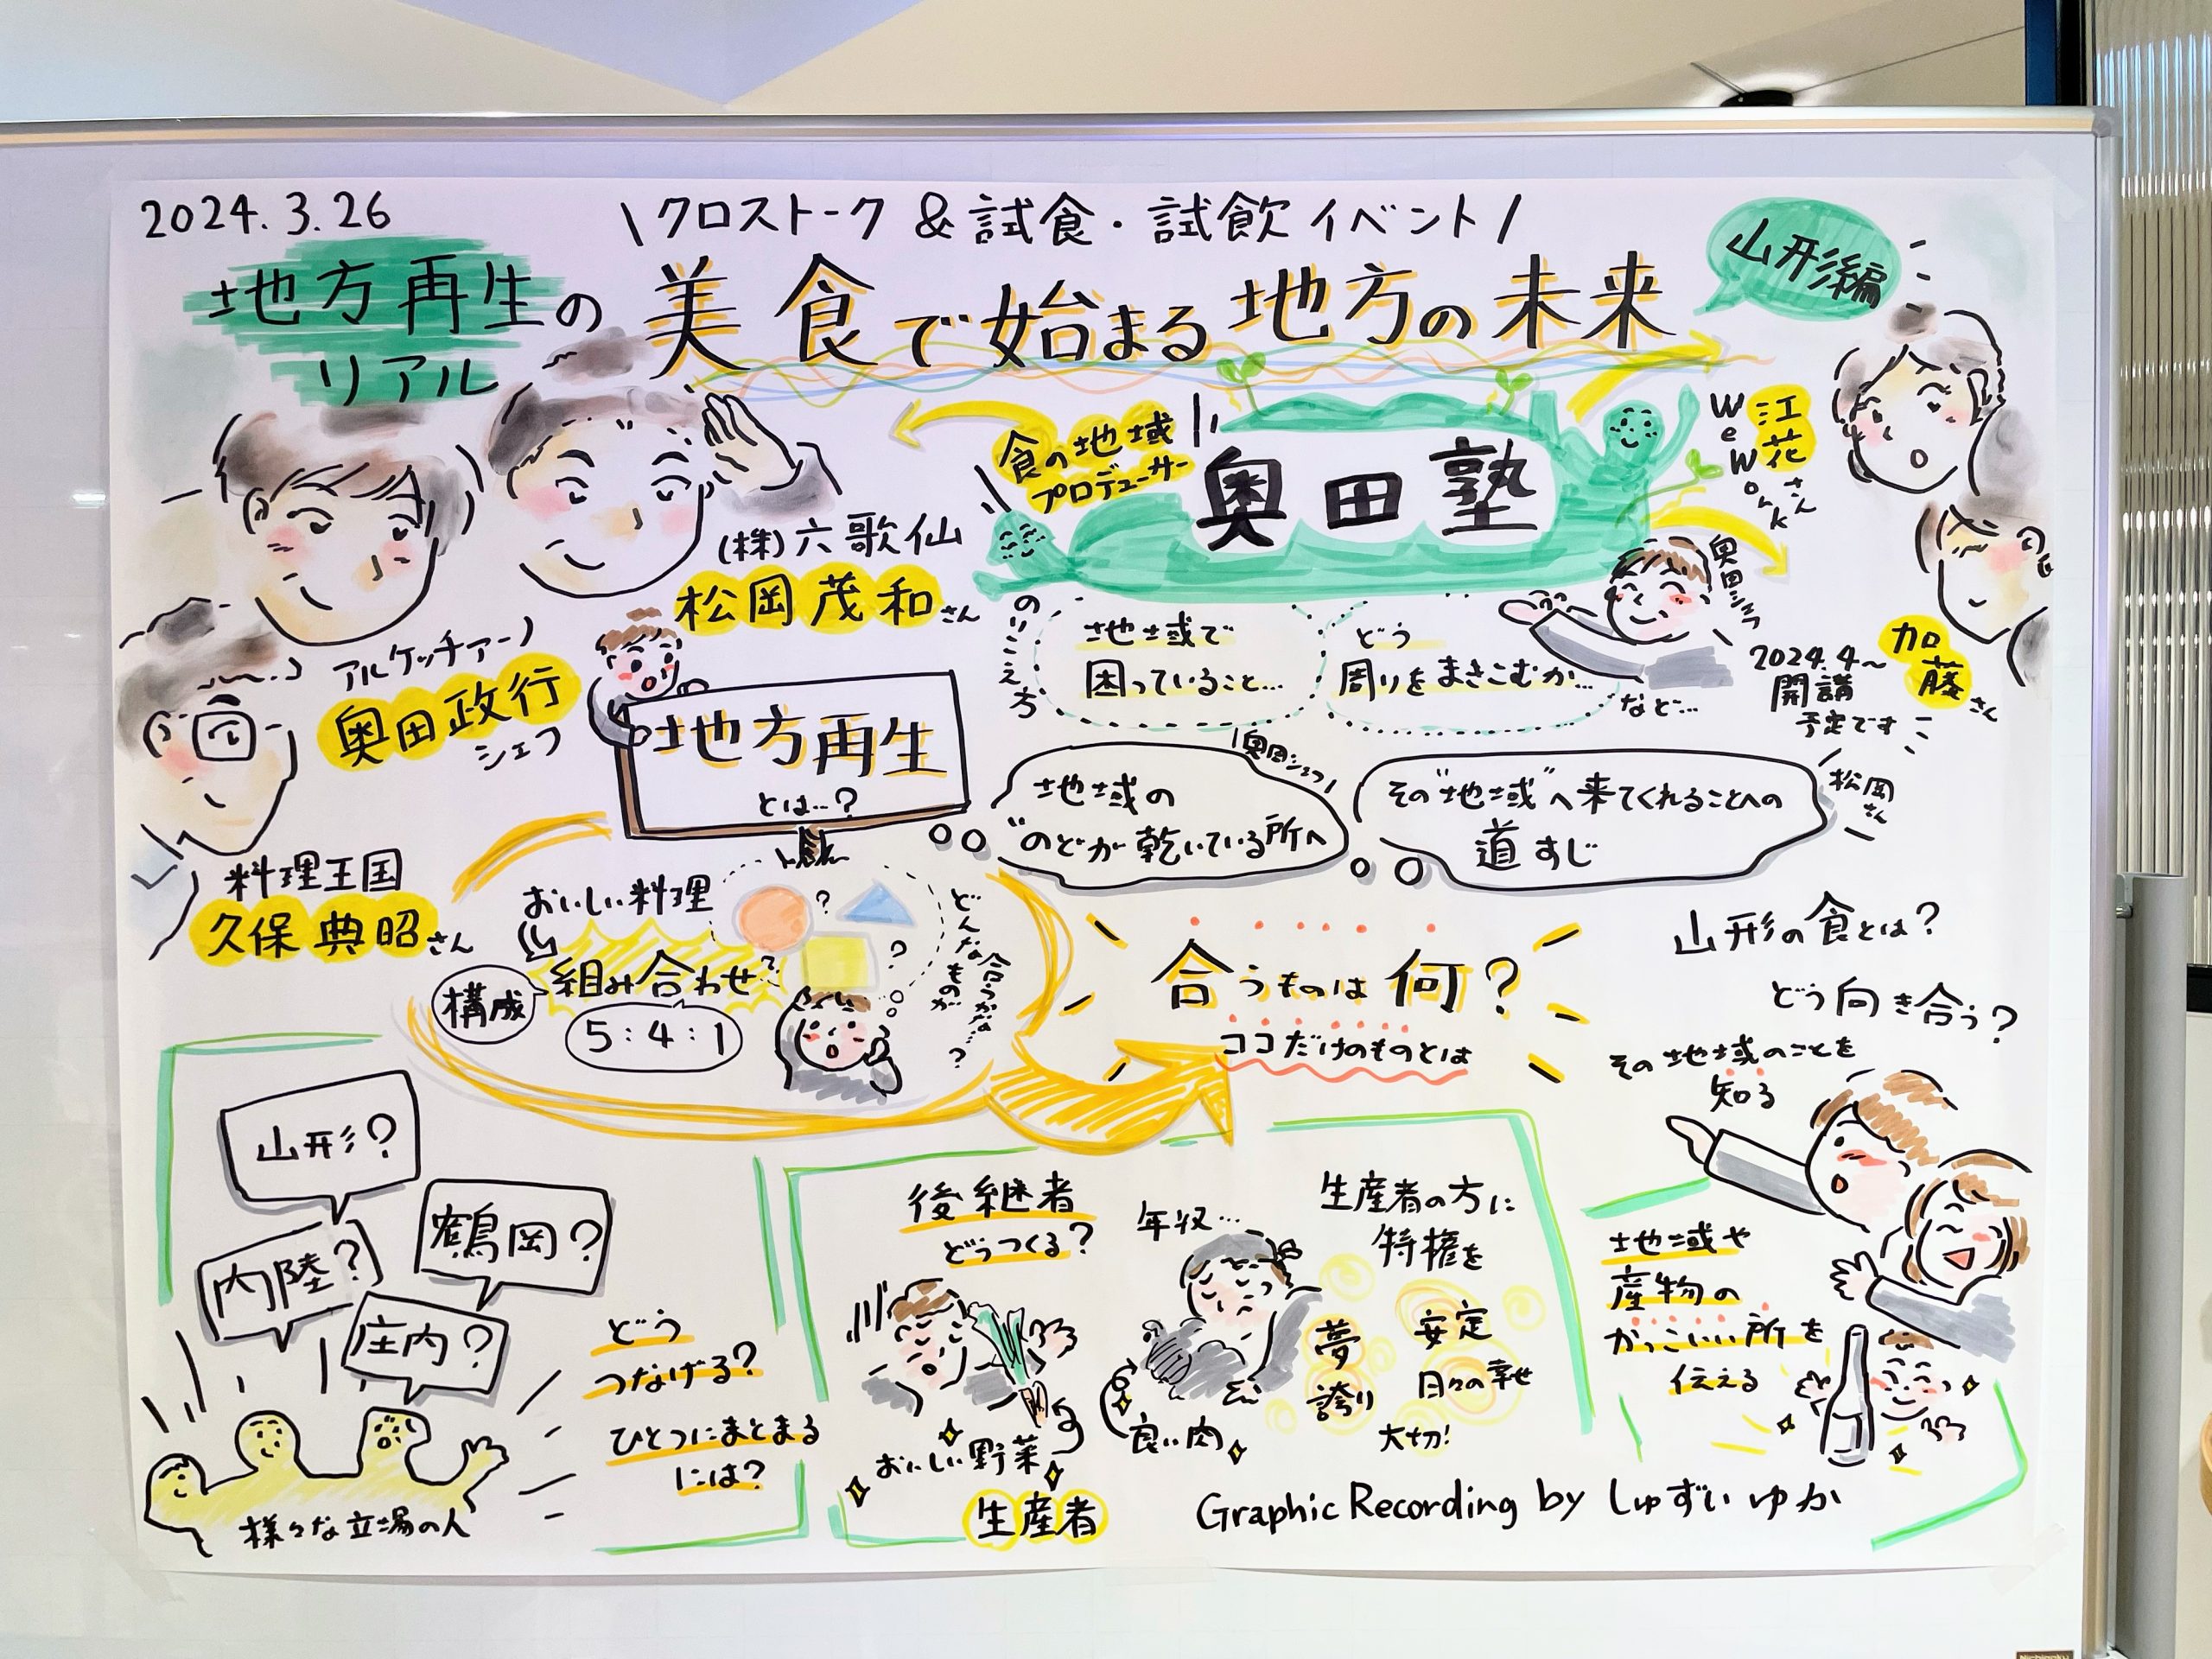 2024.3.26
\クロストーク &試食・試飲イベント/
地方再生の
リアル
美食で始まる地方の未来
山形編
食の地域
プロデューサー
奥田塾
WeWork
江花さん
(株)六歌仙
松岡茂和さん
アルケッチァーノ
奥田政行
シェフ
料理王国
久保典昭さん
奥田シェフ
のりこえ方
地域で
困っていること…
どう
周りをまきこむか…
など…
2024.4〜
開講
予定です
加藤さん
地方再生
とは…?
奥田シェフ
地域の
"のどが乾いている所へ
その"地域"へ来てくれることへの
道すじ
松岡さん
おいしい料理
構成
組み合わせ
5:4:1
?
?
?
どんなものが
合うかな…?
合うものは何?
ココだけのものとは
山形の食とは?
どう向き合う?
その地域のことを
知る
山形?
鶴岡?
内陸?
庄内?
様々な立場の人
どう
つなげる?
ひとつにまとまる
には?
後継者
どうつくる?
おいしい野菜
年収…
良い肉
生産者
生産者の方に
特権を
夢
安定
誇り
日々の幸せ
大切!
地域や
産物の
かっこいい所を
伝える
Graphic Recording by しゅずい ゆか